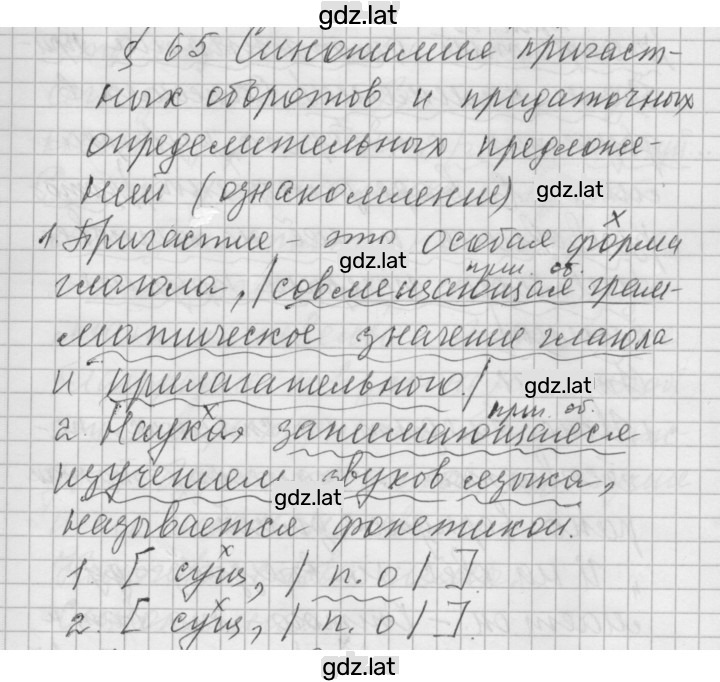 gdz.lat
§ 65 Синонимия причаст-
ных оборотов и придаточных
определительных предложе-
ний (ознакомление)
gdz.lat
х
1. Причастие - это особая форма
gdz.lat
прич. об.
глагола, /совмещающая грам-
матическое значение глагола
и прилагательного./
gdz.lat
прич. об.
х
2. Наука, занимающаяся
изучением звуков языка,
gdz.lat
называется фонетикой.
х
1. [ сущ, / п. о / ].
х
2. [ сущ, / п. о / ].
gdz.lat